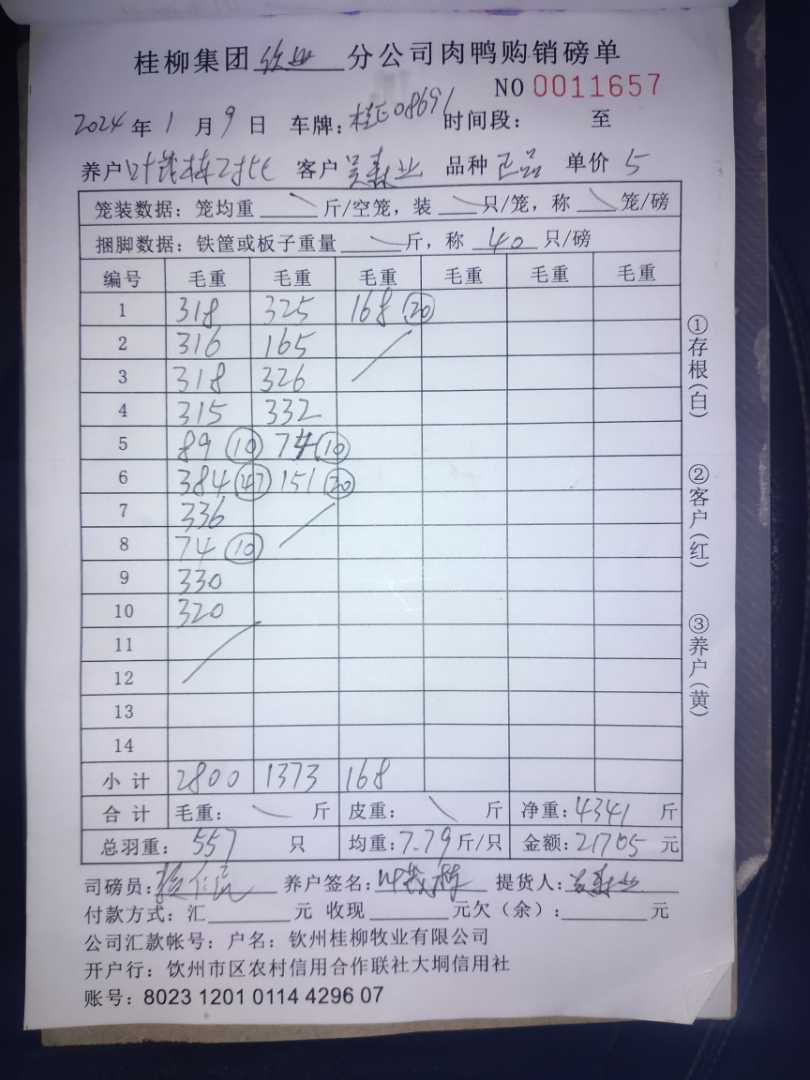 桂柳集团钦业分公司肉鸭购销磅单
NO 0011657
2024年1月9日 车牌: 08691 时间段: 至
养户 客户 吴森业 品种 正品 单价 5
笼装数据: 笼均重 斤/空笼, 装 只/笼, 称 笼/磅
捆脚数据: 铁筐或板子重量 斤, 称 40 只/磅
编号 毛重 毛重 毛重 毛重 毛重 毛重
1 318 325 168 (20)
2 316 165
3 318 326
4 315 332
5 89 (10) 74 (10)
6 384 (47) 151 (20)
7 336
8 74 (10)
9 330
10 320
11
12
13
14
小计 2800 1373 168
合计 毛重: 斤 皮重: 斤 净重: 4341 斤
总羽重: 557 只 均重: 7.79 斤/只 金额: 21705 元
司磅员: 养户签名: 提货人: 吴森业
付款方式: 汇 元 收现 元欠(余): 元
公司汇款帐号: 户名: 钦州桂柳牧业有限公司
开户行: 钦州市区农村信用合作联社大垌信用社
账号: 8023 1201 0114 4296 07
①存根(白)
②客户(红)
③养户(黄)